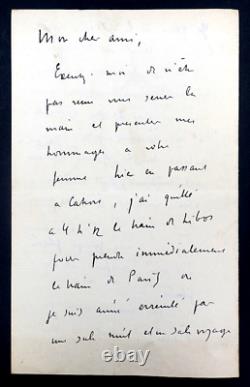 Mon cher ami,
Excusez-moi de n'être
pas venu vous serrer la
main et présenter mes
hommages à votre
femme hier en passant
à Cahors, j'ai quitté
à 4 h 1/2 le train de Libos
pour prendre immédiatement
le train de Paris où
je suis arrivé éreinté par
une sale nuit et un sale voyage
© ebay